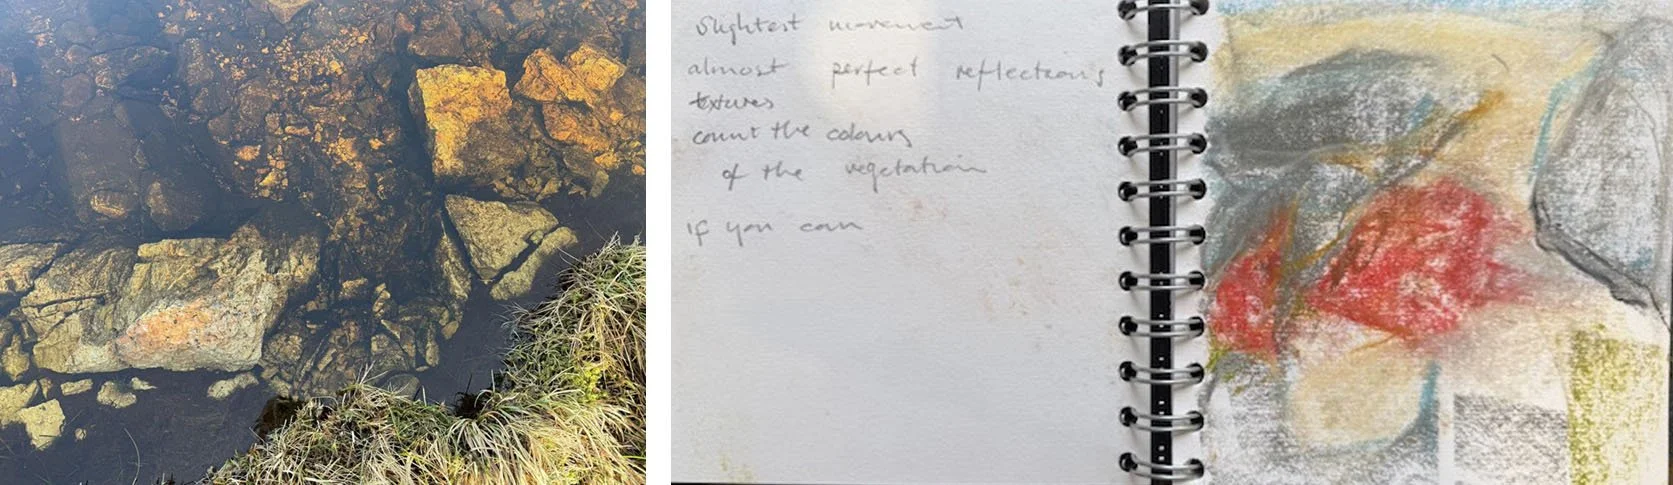 slightest movement
almost perfect reflections
textures
count the colours
of the vegetation
if you can